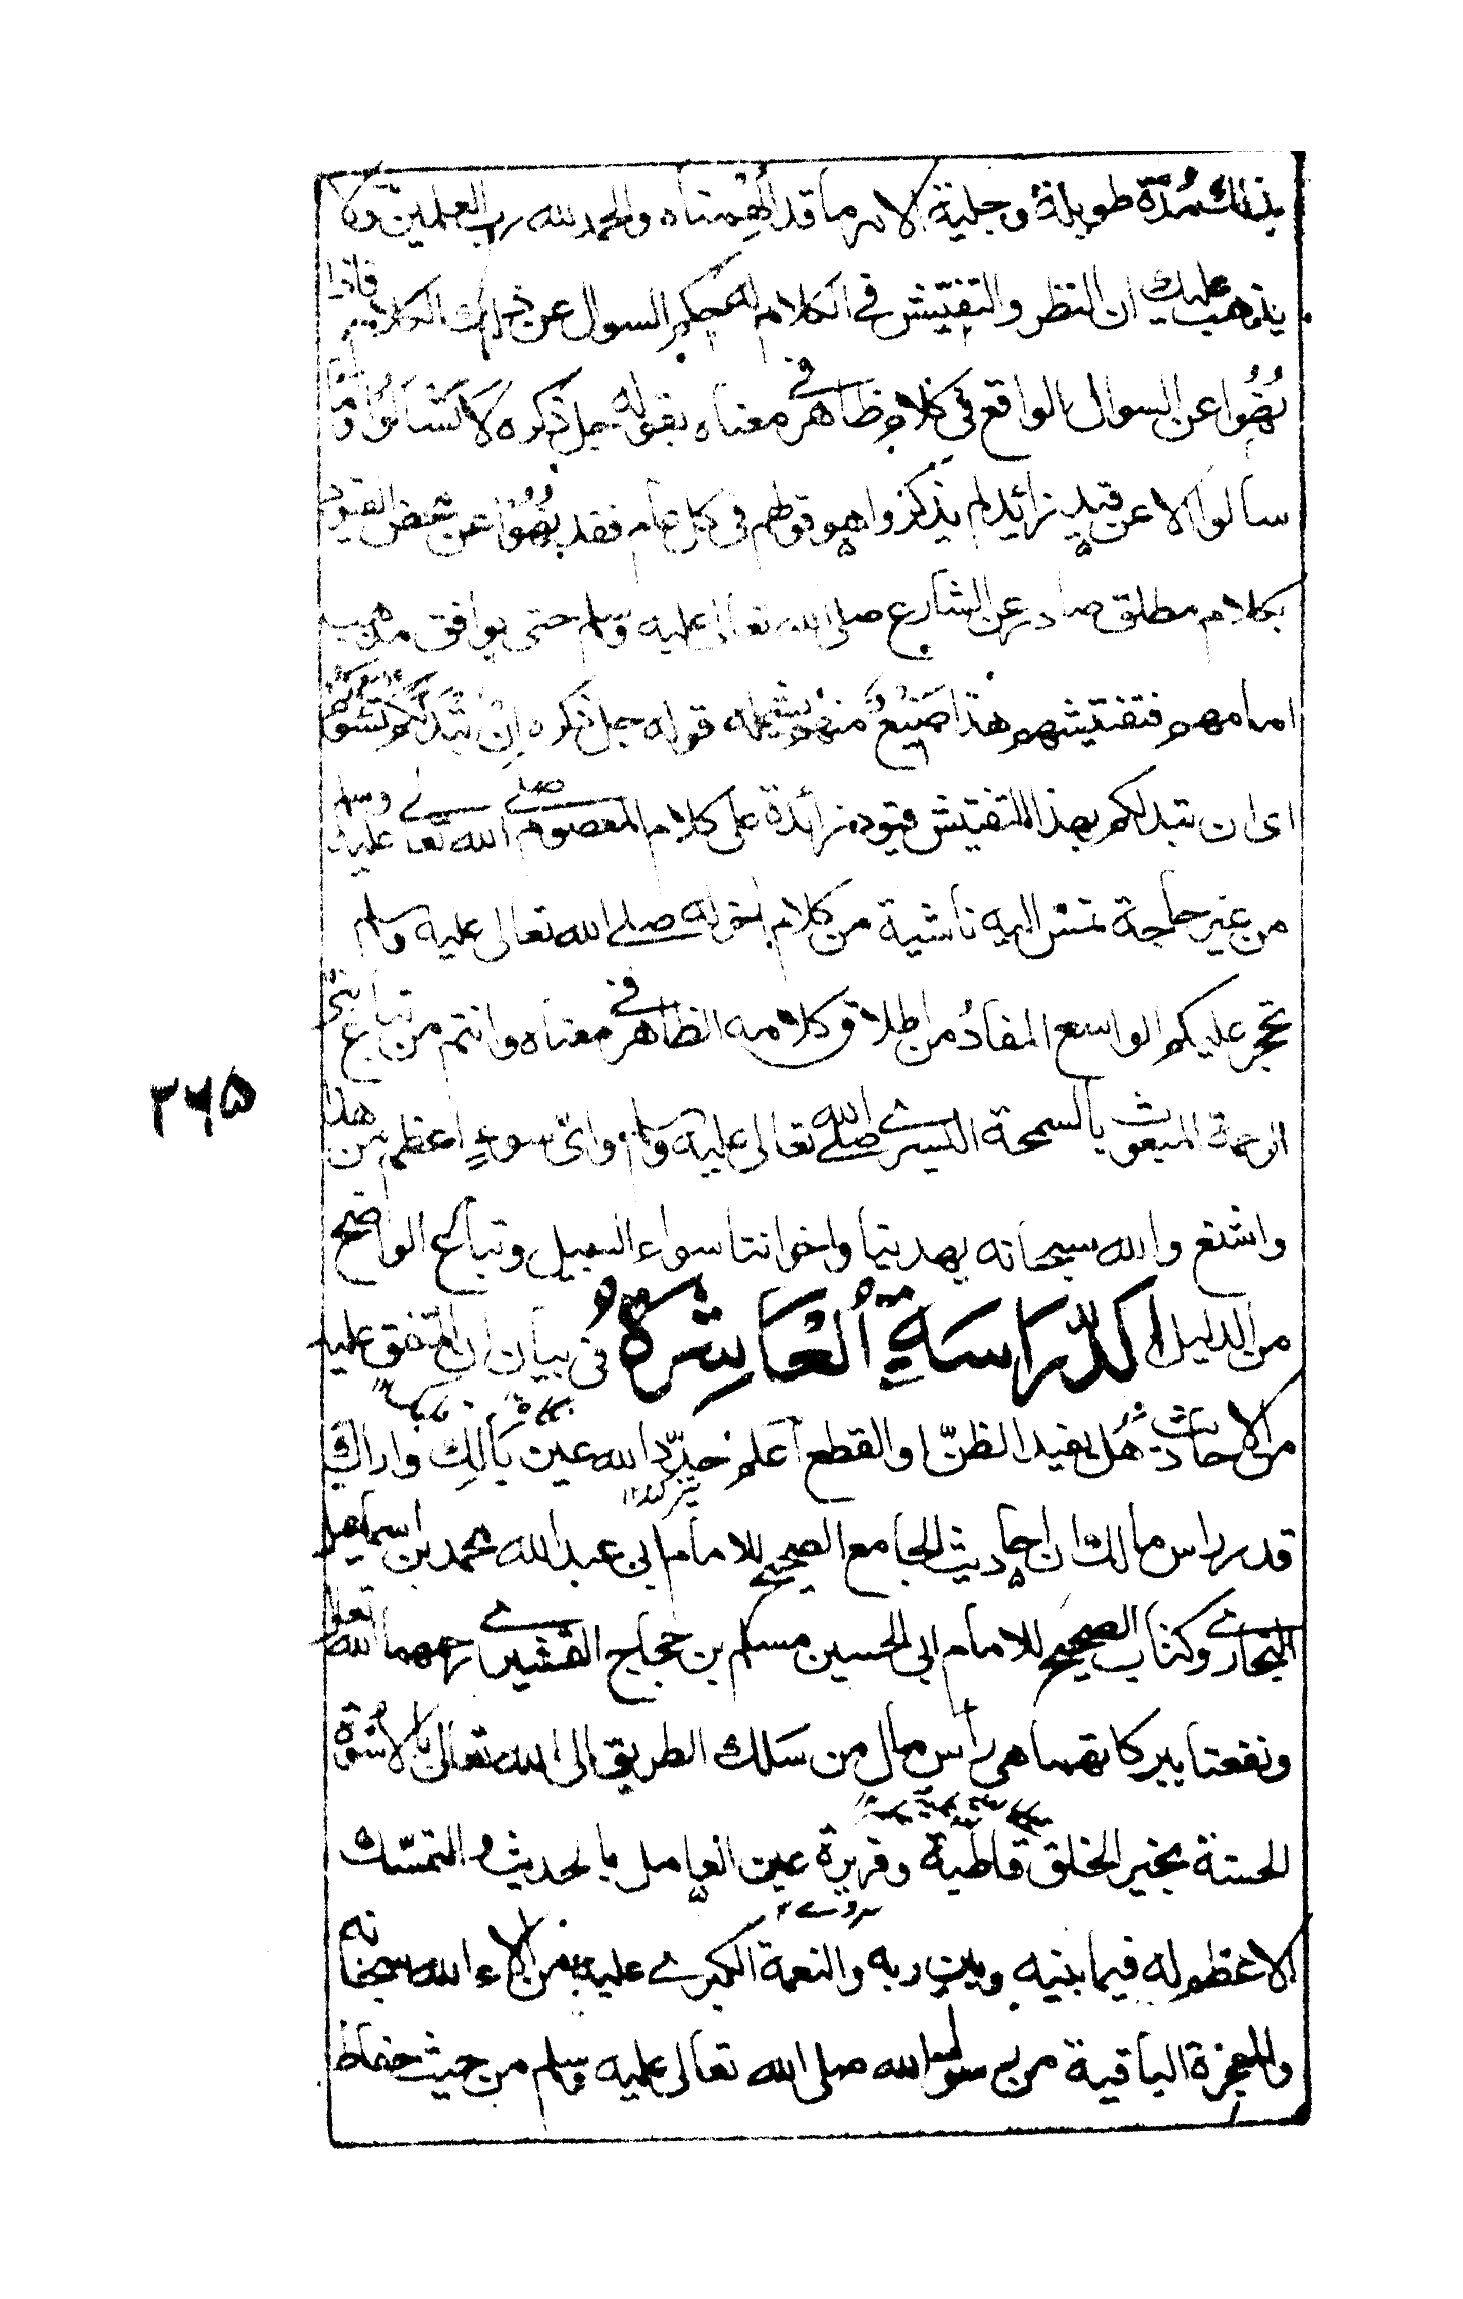 بذلك مدّة طويلة وجلية الامر ما قد اُلْهِمناه والحمد لله رب العلمين ولا
يذهب عليك ان النظر والتفتيش في الكلام له حكم السوال عن ذلك الكلام فاذا
نُهُوا عن السوال الواقع في كلام ظاهر في معناه بقوله جل ذكره لا تَسْاَلُوْا وما
سالوا الا عن قيد زائد لم يذكر وهو قولهم في كل عام فقد نُهُوْا عن القيود
بكلام مطلق صادر عن الشارع صلى الله تعالى عليه وسلم حتى يوافق مذهب
امامهم فتفتيشهم هذا صَنِيْعٌ يشمله قوله جل ذكره اِنْ تُبْدَ لَكُمْ تَسُؤْكُمْ
اى ان تبد لكم بهذا التفتيش قيود زائدة على كلام المعصوم صلى الله تعالى عليه وسلم
من غير حاجة تمس اليه ناشية من كلام اخر له صلى الله تعالى عليه وسلم
تحجر عليكم الواسع المفادُ من اطلاق كلامه الظاهر في معناه وانتم من اتباع نبي
الرحمة المبعوث بالسمحة اليسرى صلى الله تعالى عليه وسلم واىّ سوءٍ اعظم من هذا
واشنع والله سبحانه يهدينا واخواننا سواء السبيل وتباع الواضح
من الدليل الدِّرَاسَةِ الْعَاشِرَةُ في بيان ان المتفق عليه
من الاحاديث هَل يفيد الظنّ او القطع اعلم الله عين بَالِكَ واراك
قدر راس مالك ان احاديث الجامع الصحيح للامام ابى عبد الله محمد بن اسماعيل
البخارى وكتاب الصحيح للامام ابى الحسين مسلم بن حجاج القشيرى رحمهما الله تعالى
ونفعنا ببركاتهما هى رأس مال من سَلك الطريق الى الله تعالى بالاُسْوَة
الحسنة بخير الخلق قاطبة وقريرة عين العامل بالحديث والتمسّك
الاعظم له فيما بينه وبين ربه والنعمة الكبرى عليه من الاء الله سبحانه
والمعجزة الباقية من رسول الله صلى الله تعالى عليه وسلم من حيث حفاظ
٢٦٥